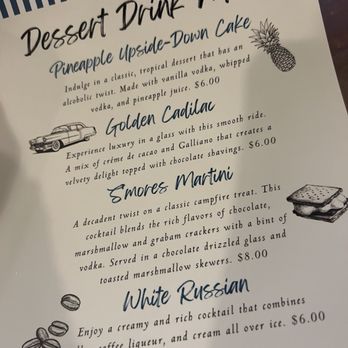 Dessert Drink
Pineapple Upside-Down Cake
Indulge in a classic, tropical dessert that has an
alcoholic twist. Made with vanilla vodka, whipped
vodka, and pineapple juice. $6.00
Golden Cadilac
Experience luxury in a glass with this smooth ride.
A mix of créme de cacao and Galliano that creates a
velvety delight topped with chocolate shavings. $6.00
S'mores Martini
A decadent twist on a classic campfire treat. This
cocktail blends the rich flavors of chocolate,
marshmallow and graham crackers with a hint of
vodka. Served in a chocolate drizzled glass and
toasted marshmallow skewers. $8.00
White Russian
Enjoy a creamy and rich cocktail that combines
coffee liqueur, and cream all over ice. $6.00